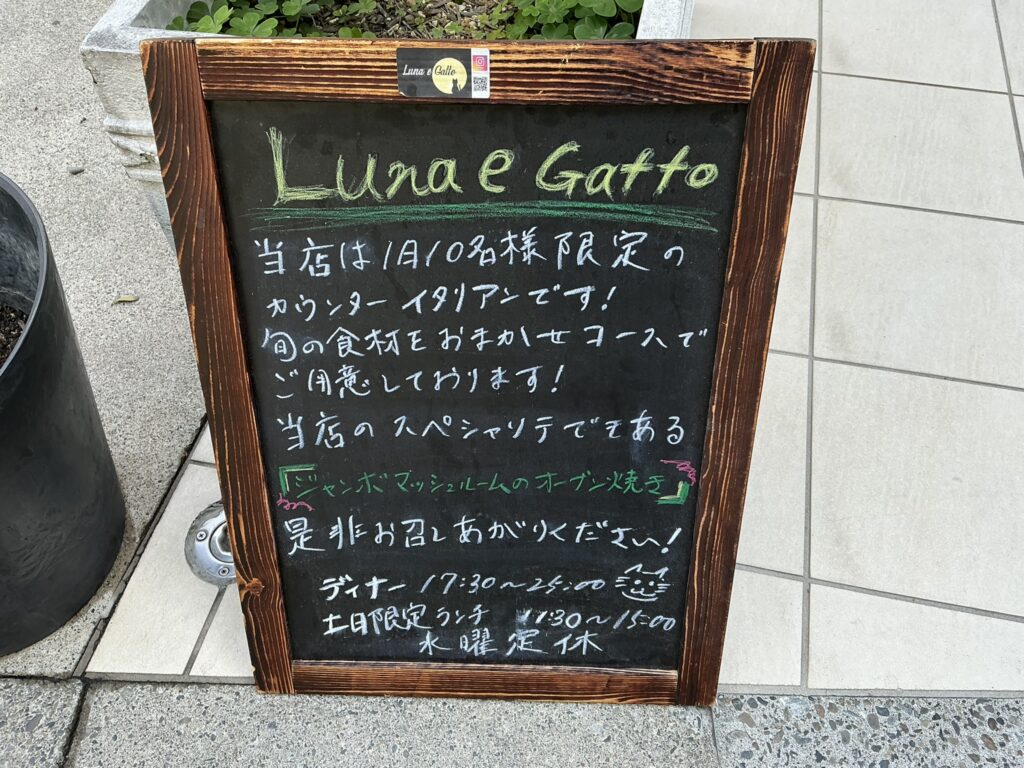 Luna e Gatto
Luna e Gatto
当店は1日10名様限定の
カウンターイタリアンです!
旬の食材をおまかせコースで
ご用意しております!
当店のスペシャリテでもある
『ジャンボマッシュルームのオーブン焼き』
是非お召しあがりください!
ディナー 17:30~25:00
土日限定ランチ 11:30~15:00
水曜定休